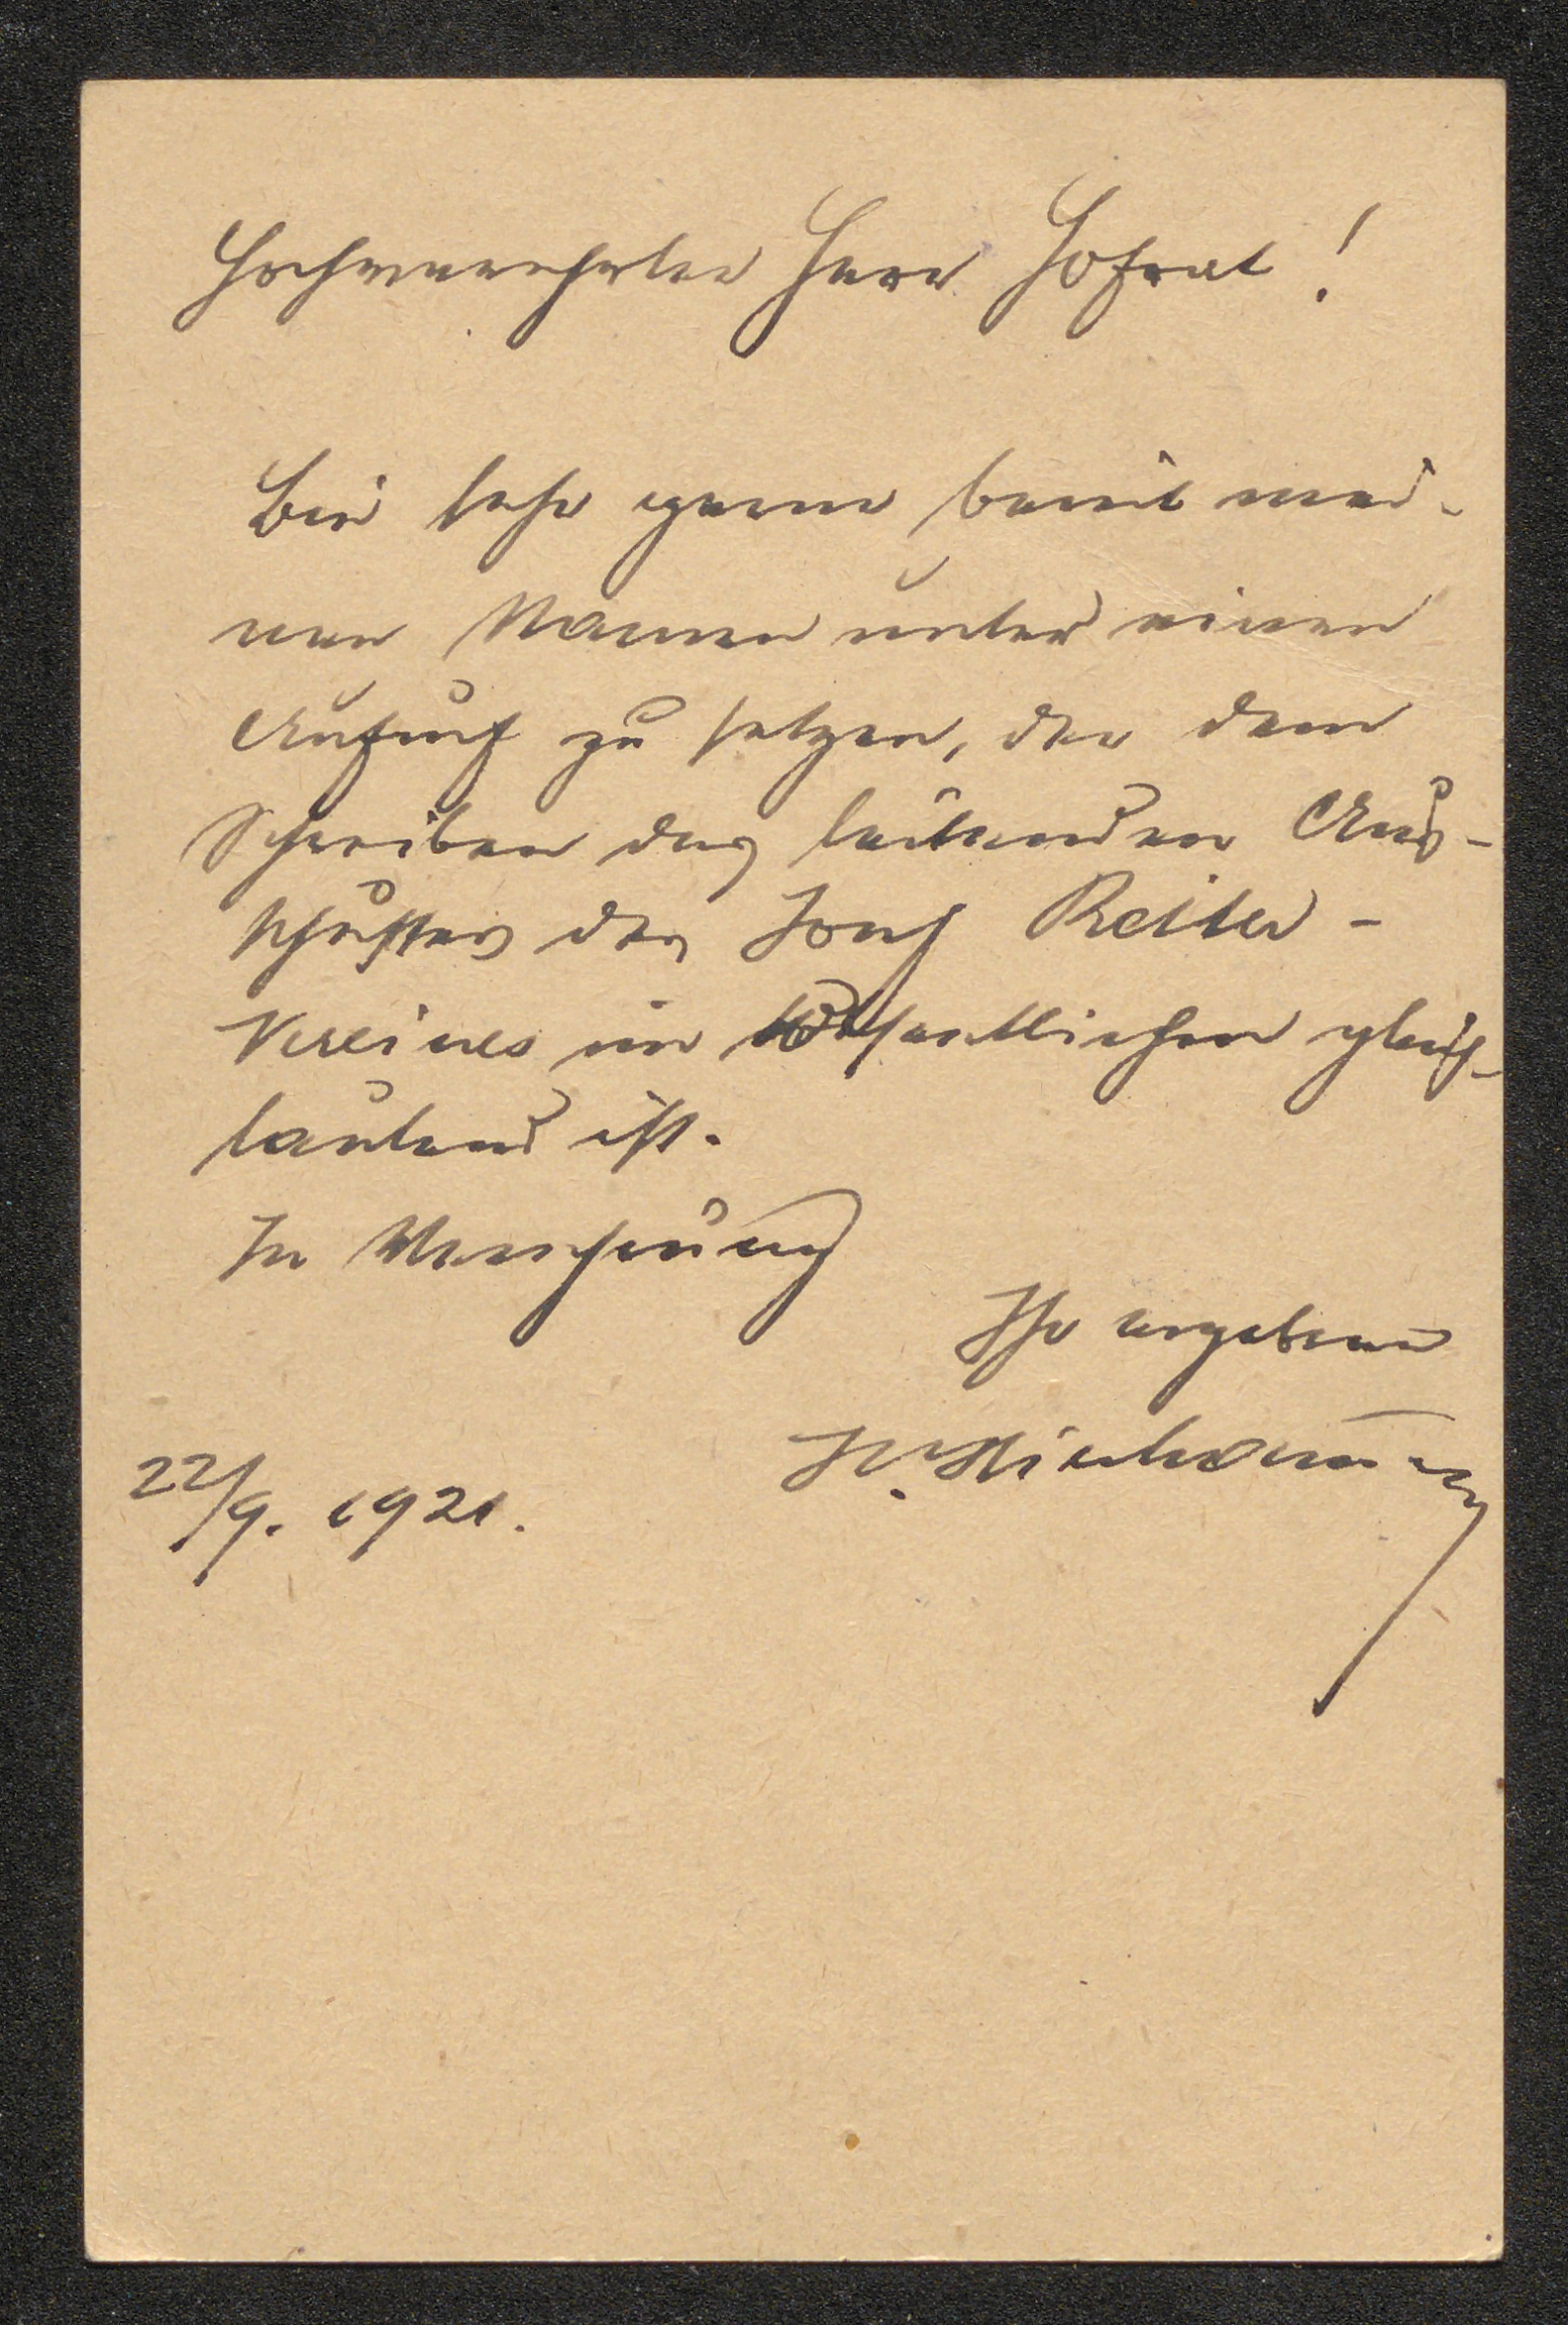 Hochverehrter Herr Hofrat!
Bin sehr gerne bereit mei-
nen Namen unter einen
Aufruf zu setzen, der dem
Schreiben des leitenden Aus-
schusses des Josef Reiter-
Vereines im Wesentlichen gleich-
lautend ist.
In Verehrung
Ihr ergebener
22/9. 1921.